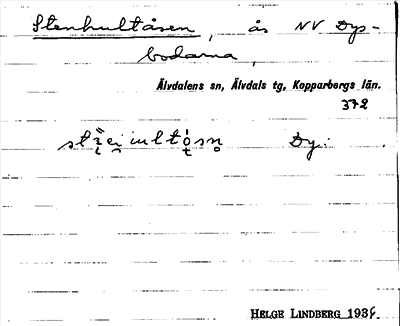 Stenhultåsen, ås NV Dys-
bodarna,
Älvdalens sn, Älvdals tg, Kopparbergs län.
372
Dy.
HELGE LINDBERG 1936.